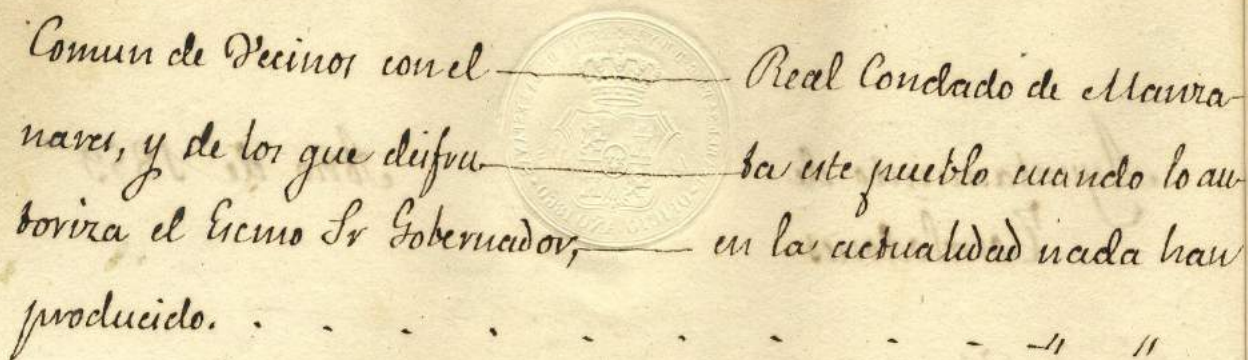 Comun de Vecinos con el ——— Real Condado de Manza-
nares, y de los que disfru- ——— ta este pueblo cuando lo au-
toriza el Escmo Sr Gobernador, ——— en la actualidad nada han
producido. . . . . . . . . . . —" "